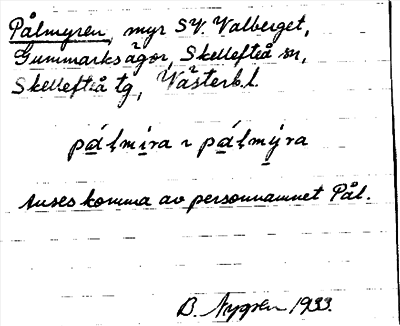 Pålmyren, myr SV. Valberget,
Gummarks ägor, Skellefteå sn,
Skellefteå tg, Västerb.l.
pálmíra ı pálmýra
Anses komma av personnamnet Pål.
B. Nygren 1933.